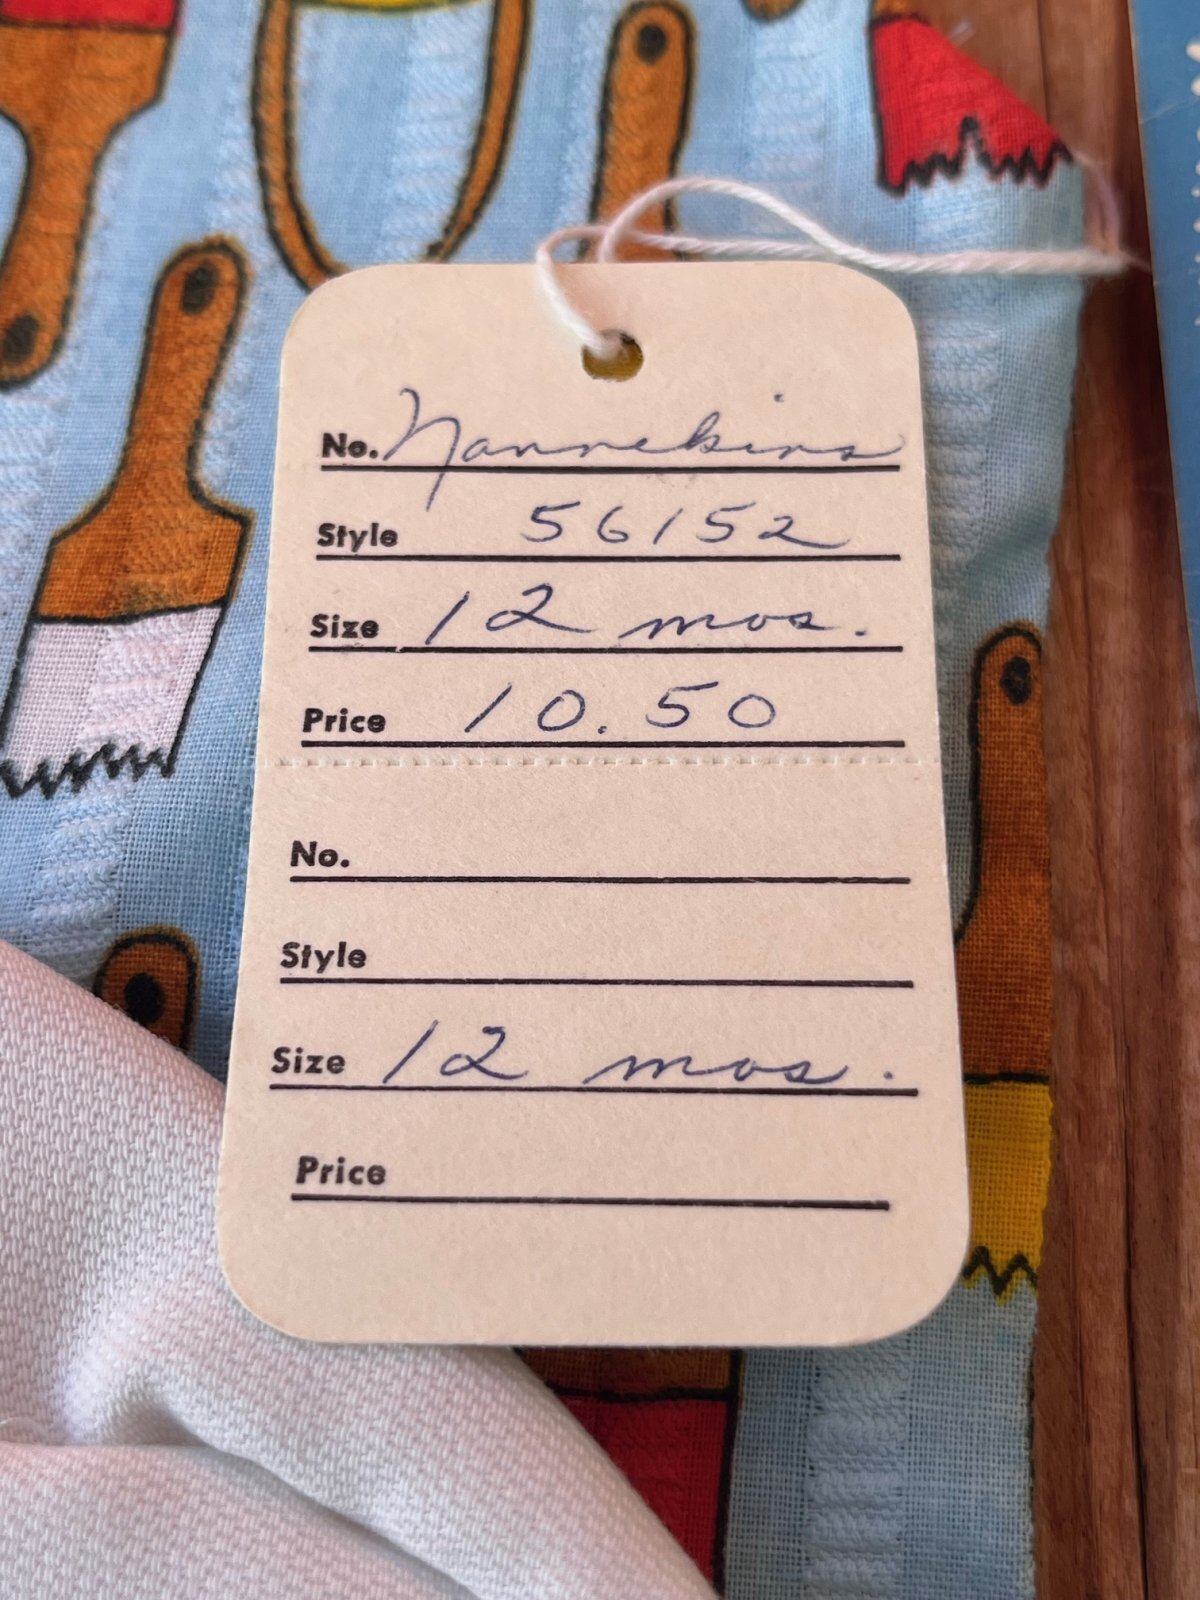 No. Nannekins
Style 56152
Size 12 mos.
Price 10.50
No.
Style
Size 12 mos.
Price